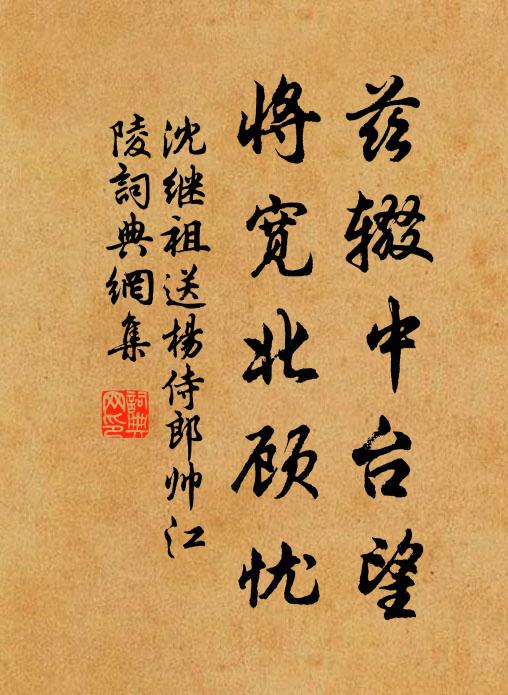 兹辍中台望
将宽北顾忧
沈继祖送楊侍郎帅江
陵詞典網集
詞典
网印